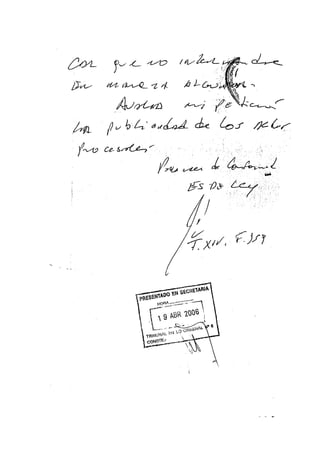 con que no interfiere
en manera alguna.
Avala mi petición
la publicidad de los actos
procesales
Proveer de conformidad
ES DE Ley
T. XIV. F. 359
PRESENTADO EN SECRETARIA
HORA
19 ABR 2006
TRIBUNAL EN LO CRIMINAL Nº 6
CONSTE: